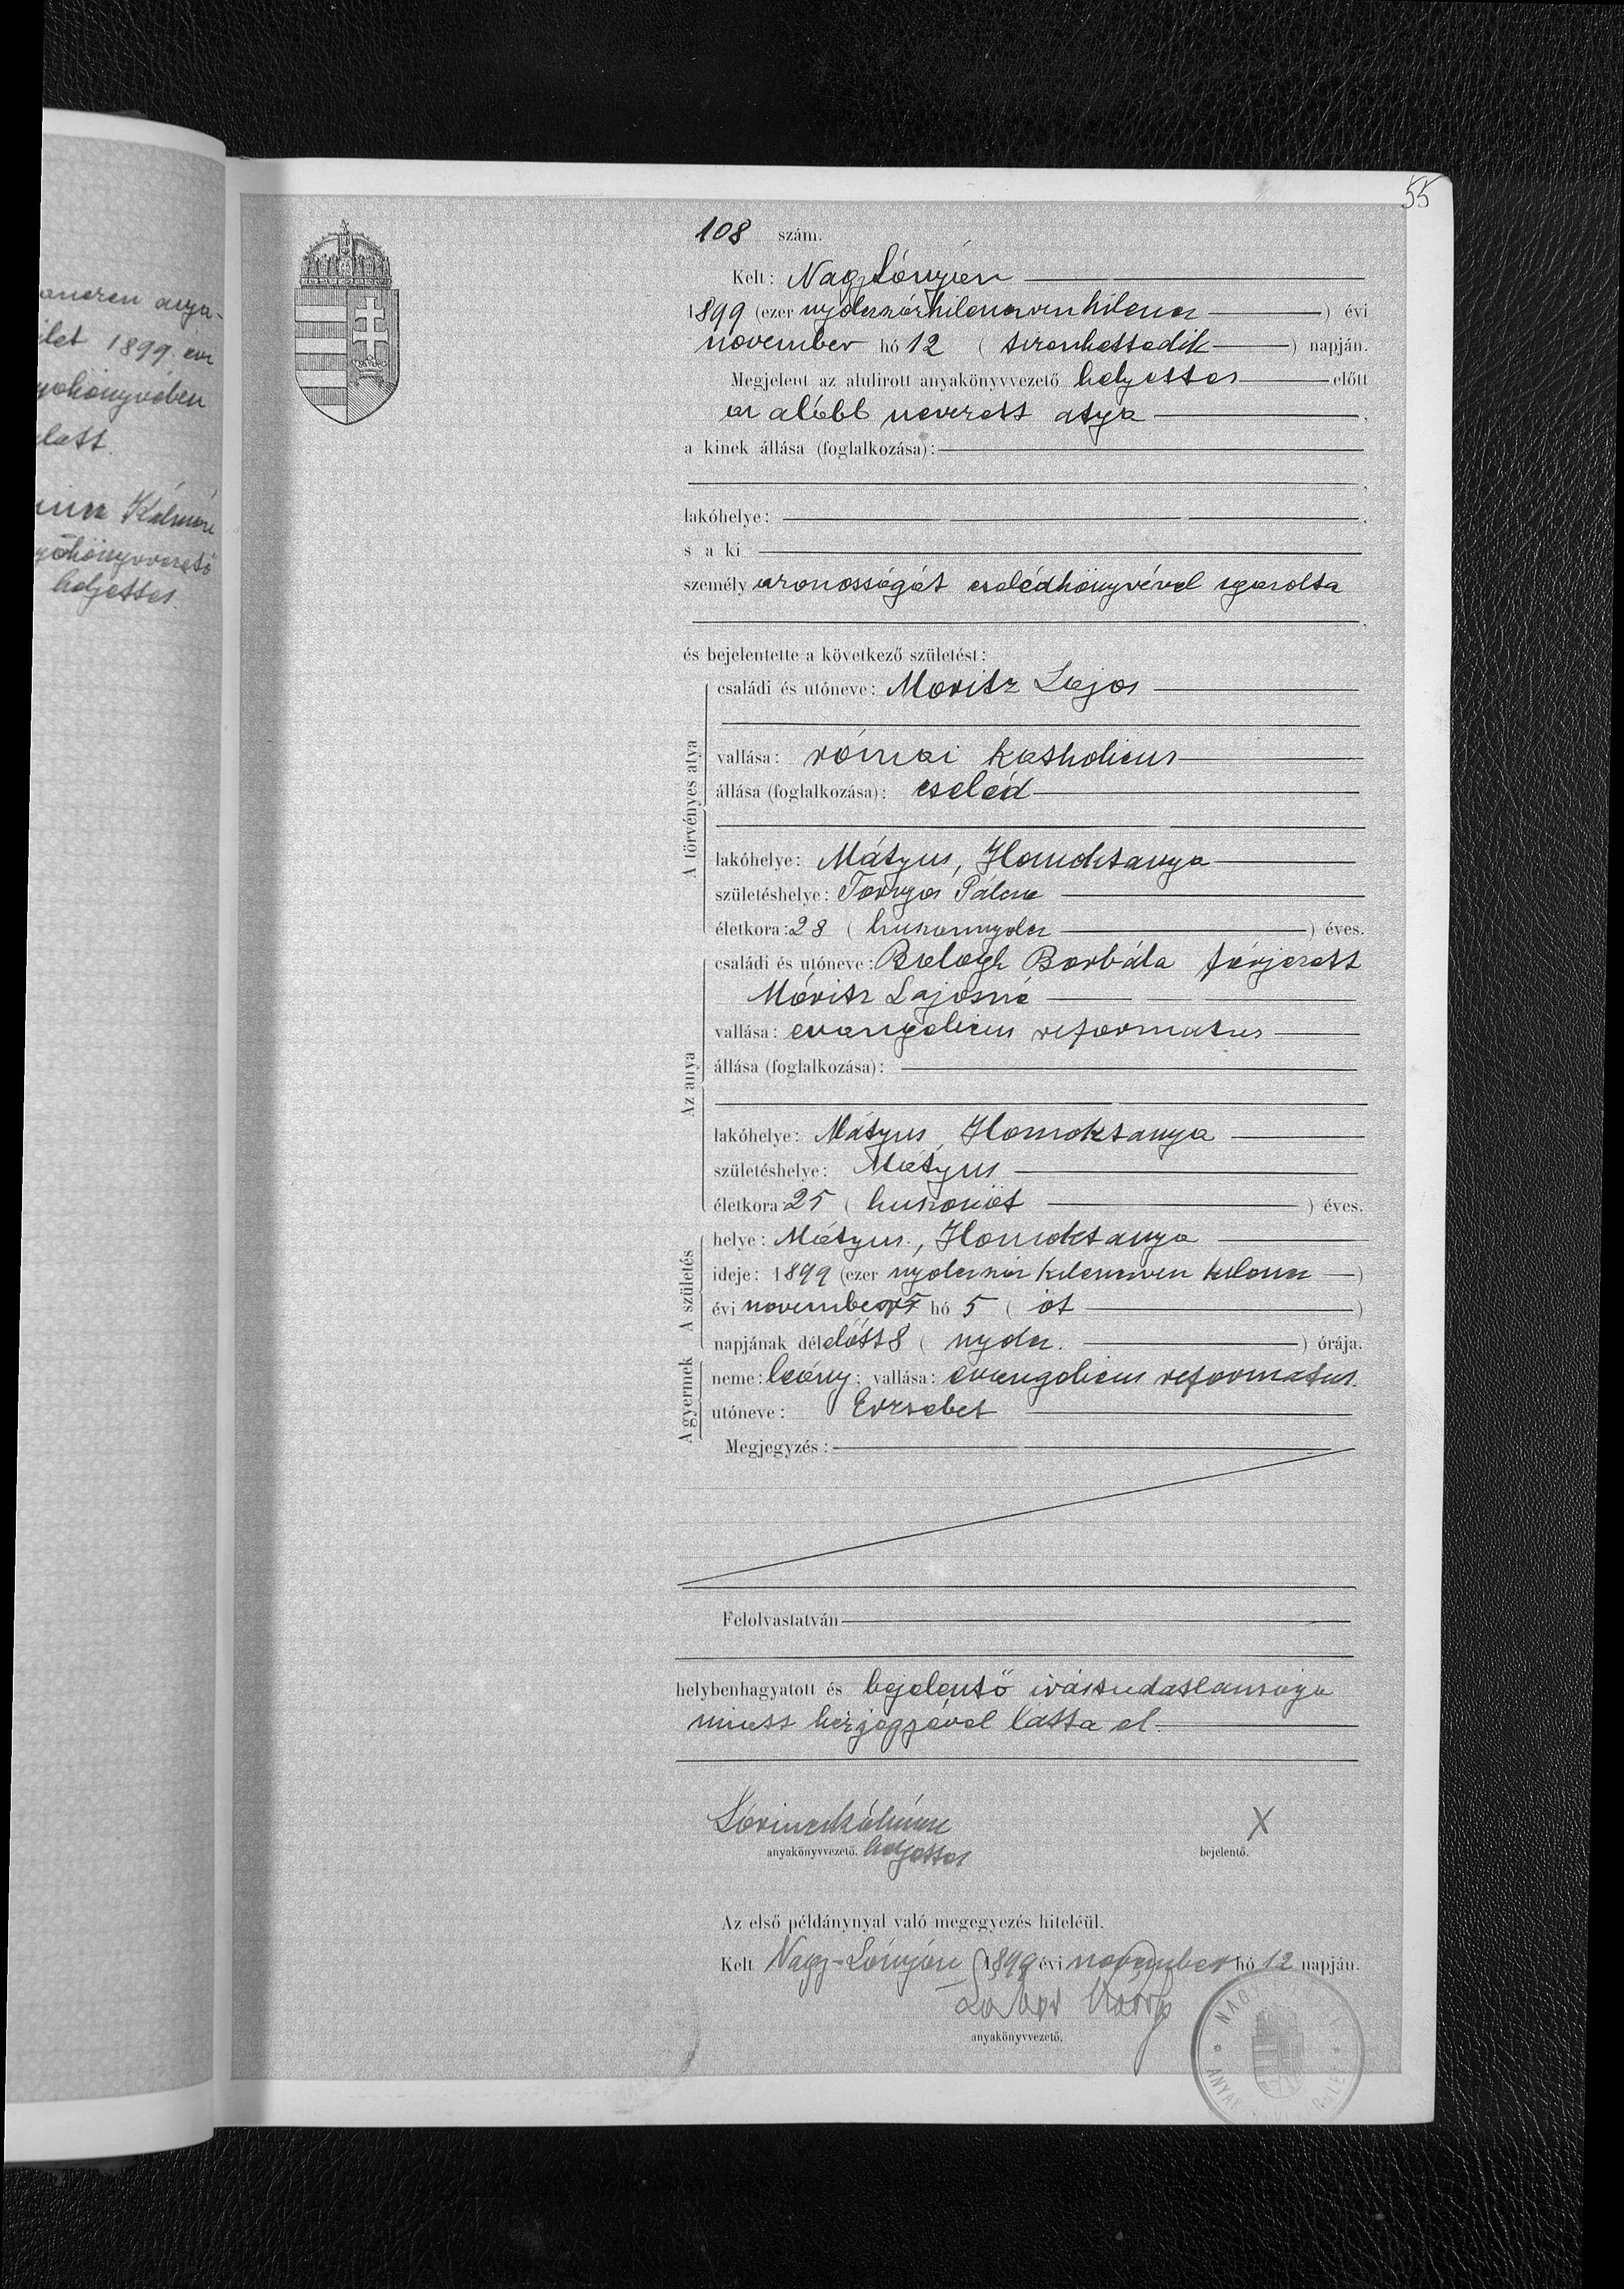 55
108 szám.
Kelt: Nagy Lónyán
1899 (ezer nyolczszázkilenczvenkilencz) évi
november hó 12 (tizenkettedik) napján.
Megjelent az alulirott anyakönyvvezető helyettes előtt
az alább nevezett atya,
a kinek állása (foglalkozása):
lakóhelye:
s a ki
személyazonosságát cselédkönyvével igazolta
és bejelentette a következő születést:
A törvényes atya
családi és utóneve: Moritz Lajos
vallása: római katholicus
állása (foglalkozása): cseléd
lakóhelye: Mátyus, Homoktanya
születéshelye: Tornyos Pálcza
életkora: 28 (huszonnyolcz) éves.
Az anya
családi és utóneve: Balogh Borbála férjezett
Móritz Lajosné
vallása: evangelicus reformatus
állása (foglalkozása):
lakóhelye: Mátyus, Homoktanya
születéshelye: Mátyus
életkora: 25 (huszonöt) éves.
A születés
helye: Mátyus, Homoktanya
ideje: 1899 (ezer nyolczszáz kilenczven kilencz)
évi november hó 5 (öt)
napjának délelőtt 8 (nyolcz.) órája.
A gyermek
neme: leány; vallása: evangelicus reformatus.
utóneve: Erzsebet
Megjegyzés:
Felolvastatván
helybenhagyatott és bejelentő irástudatlansága
miatt kézjegyével látta el.
Lőrincz Kálmán X
anyakönyvvezető. helyettes bejelentő.
Az első példánynyal való megegyezés hiteléül.
Kelt Nagy-Lónyán 1899 évi november hó 12 napján.
anyakönyvvezető.
anya-
1899. évi
Kálmán
helyettes.